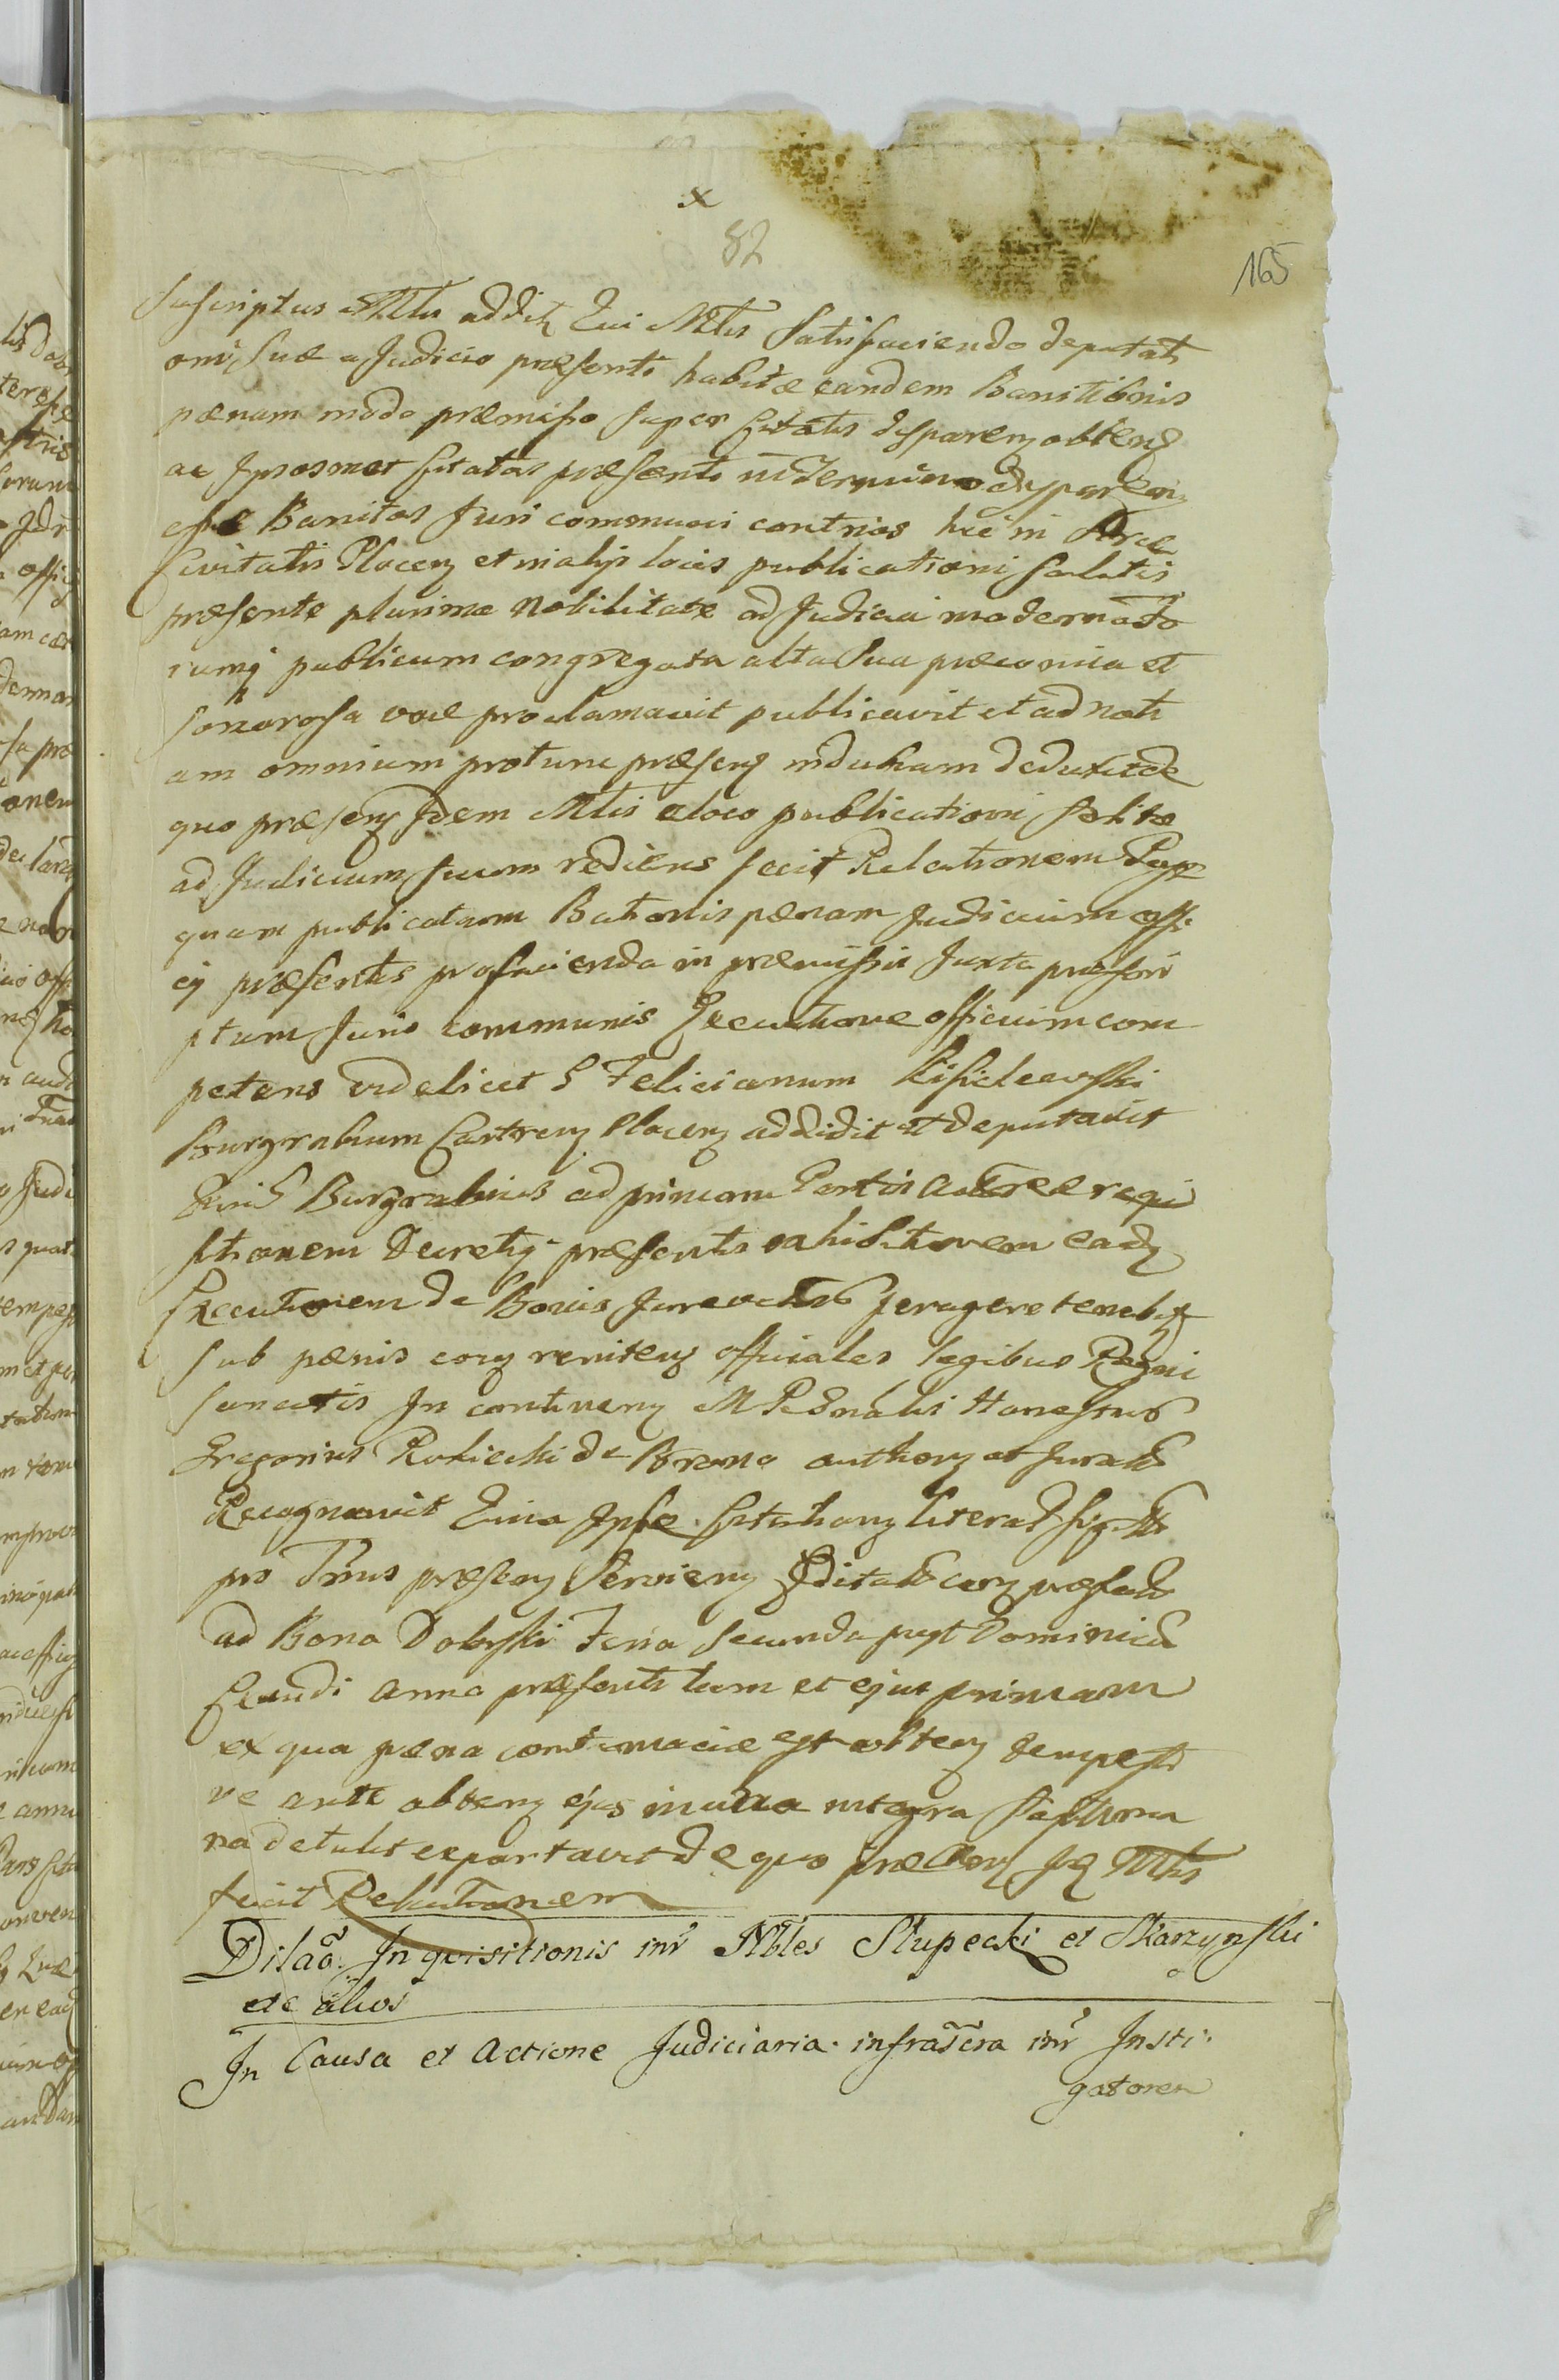 x
82
165
suscriptus Mtlis addit Qui Mtlis Satisfaciendo deputati
oni suæ a Judicio præsenti habitæ eandem Banitionis
pænam modo præmisso super Citatis disparen obtent
ac Ipsosmet Citatos præsenti in Termino disparen
esse Banitos Juri communi contrios hic in Arce
Civitatis Plocen et in alys locis publicationi solitis
præsente plurima Nobilitate ad Judicia moderna To
rumq publicum congregata alta sua præconica et
sonorosa voce proclamavit publicavit et ad noti
am omnium protunc præsen induxam deduxit de
quo præsens Idem Mtlis e loco publicationi solito
ad Judicium suum rediens fecit Relationem Post
quam publicatam Bationis pænam Judicium offi
cy præsentis pro facienda in præmissis Juxta præscri
ptum Juris communis Executione officium com
petens videlicet G Felicianum Kisielewski
Burgrabium Castren Plocen addidit et deputavit
Qui G Burgrabius ad primam Partis Actoreæ requi
sitionem Decretiq præsentis exhibitionem eadem
Executionem de Bonis Jurevictis peragere tenebitur
sub pænis eorum reniten officiales legibus Regni
sancitis In continenti M Rdnalis Honestus
Gregorius Rokicki de Brono authen et Jurat
Recognovit Quia Ipse Citationem literat sigt
pro Tmis præsen servien Editat cerg præfat
ad Bona Dobrski Feria Secunda post Dominicam
Exaudi anno præsenti tum et ejus primam
ex qua pæna contumaciæ est obten tempesti
ve ante obten ejus in una integra septima
na detulit exportavit de quo præsens Ide Mtlis
fecit Relationem
Dilaõ Inquisitionis inr̃ Nbles Słupecki et Skarzynski
etc alios
In Causa et Actione Judiciaria infrascra inr̃ Insti
gatorem